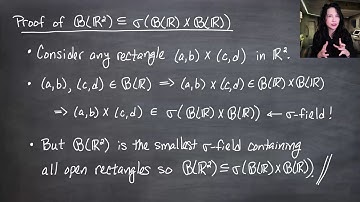 Proof of B(ℝ²) ⊆ σ(B(ℝ) × B(ℝ))
• Consider any rectangle (a,b) × (c,d) in ℝ².
• (a,b), (c,d) ∈ B(ℝ) ⟹ (a,b) × (c,d) ∈ B(ℝ) × B(ℝ)
⟹ (a,b) × (c,d) ∈ σ(B(ℝ) × B(ℝ)) ← σ-field!
• But B(ℝ²) is the smallest σ-field containing
all open rectangles so B(ℝ²) ⊆ σ(B(ℝ) × B(ℝ)). //